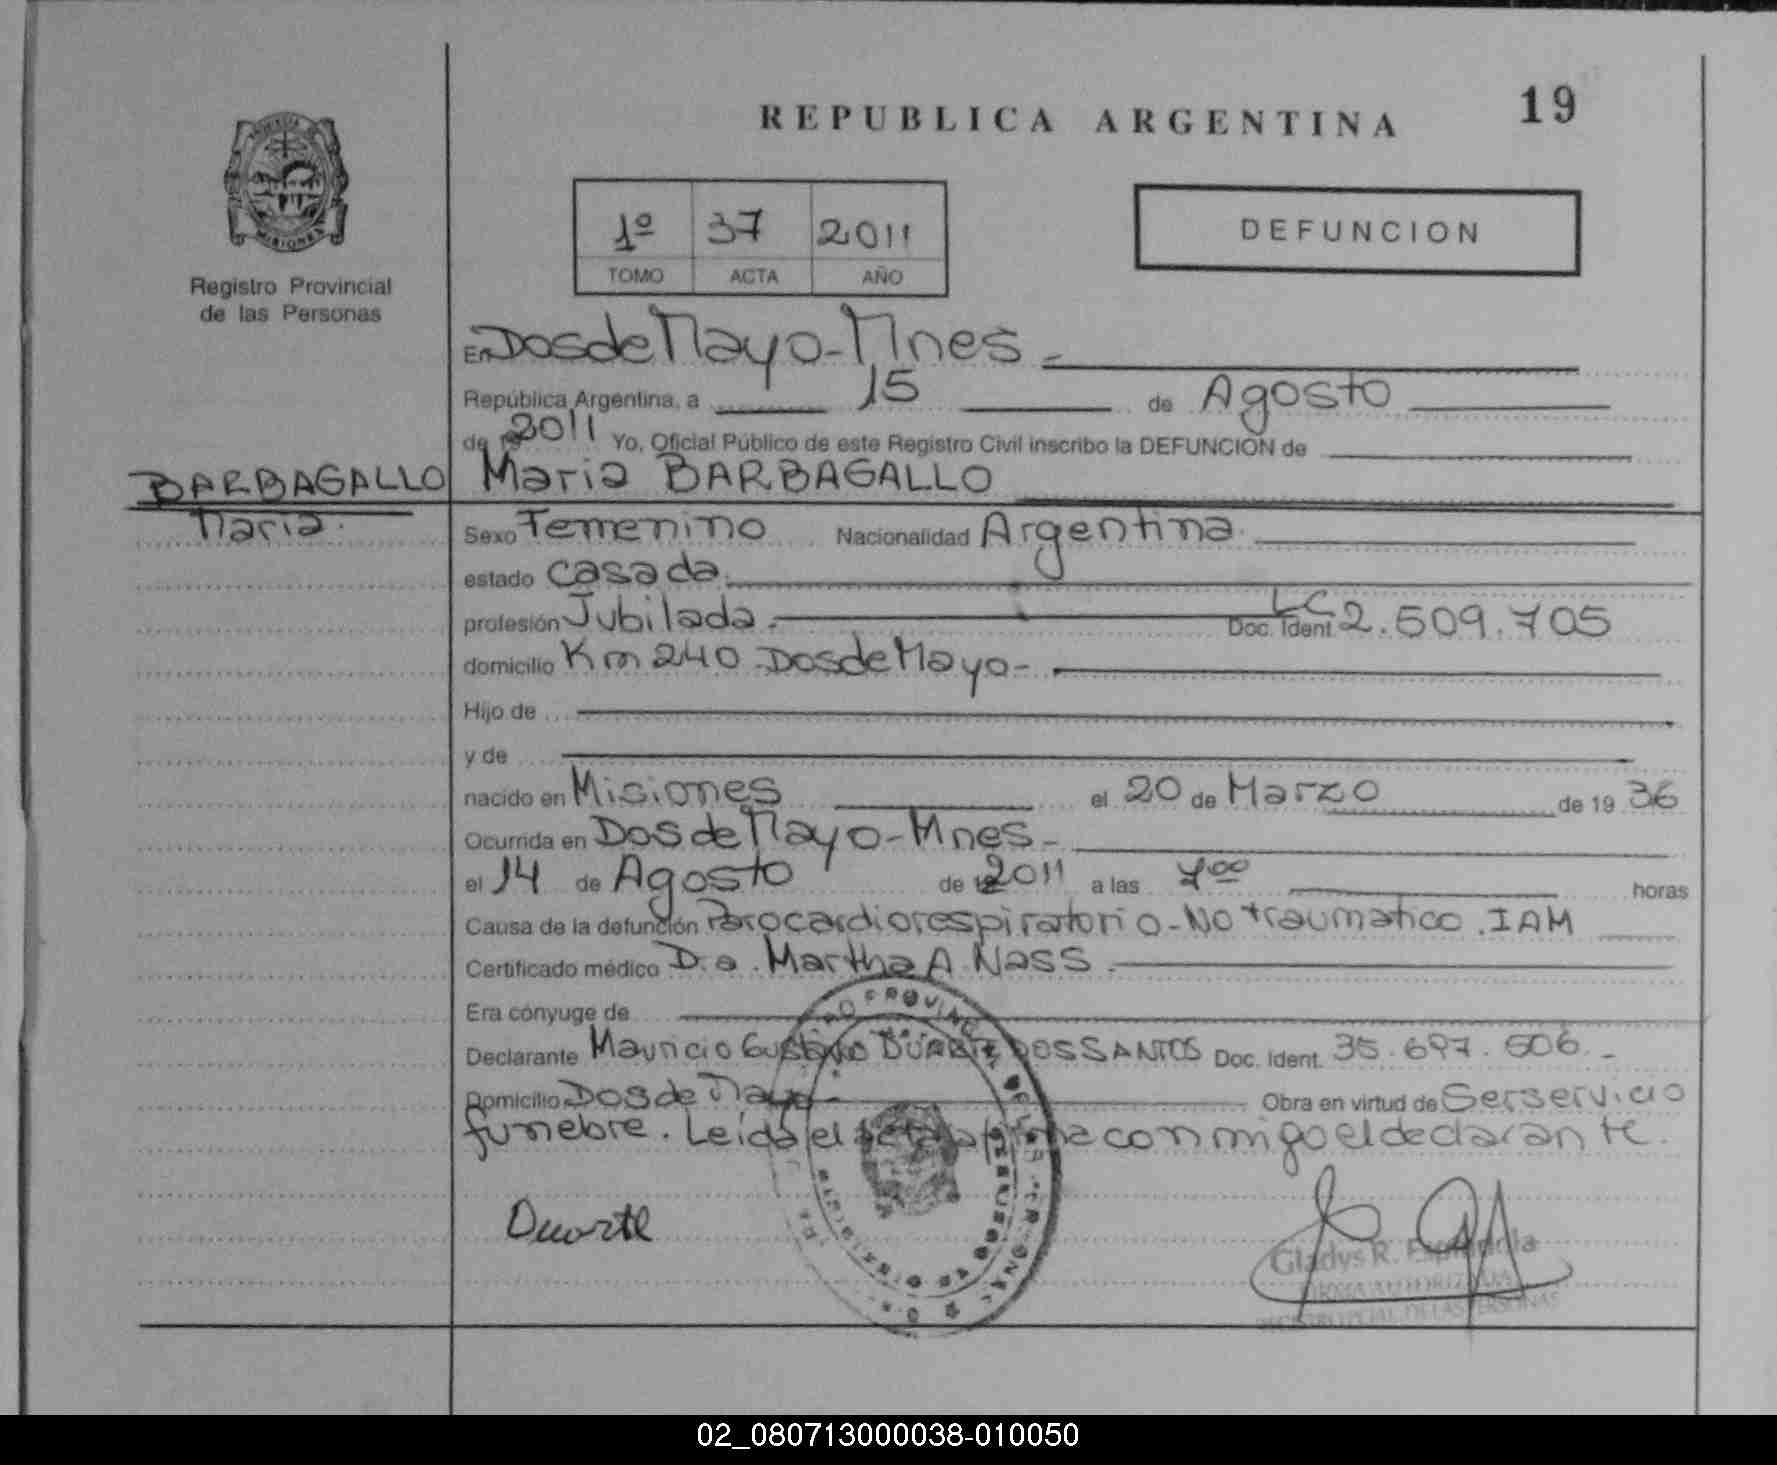 REPUBLICA ARGENTINA 19
1º 37 2011
TOMO ACTA AÑO
DEFUNCION
MISIONES
Registro Provincial
de las Personas
En Dos de Mayo - Mnes -
República Argentina, a 15 de Agosto
de 2011 Yo, Oficial Público de este Registro Civil inscribo la DEFUNCION de
BARBAGALLO Maria BARBAGALLO
Maria.
Sexo Femenino Nacionalidad Argentina.
estado Casada.
profesión Jubilada. Doc. Ident. LC 2.509.705
domicilio Km 240 - Dos de Mayo -
Hijo de
y de
nacido en Misiones el 20 de Marzo de 19 36
Ocurrida en Dos de Mayo - Mnes -
el 14 de Agosto de 2011 a las 7 00 horas
Causa de la defunción Parocardiorespiratorio - No traumatico. IAM
Certificado médico D.a. Martha A Nass.
Era cónyuge de
Declarante Mauricio Gustavo DUARTE DOS SANTOS Doc. Ident. 35.697.606. -
Domicilio Dos de Mayo - Obra en virtud de Ser servicio
funebre. Leida el acta la firma conmigo el declarante.
Duarte
Gladys R.
FIRMA AUTORIZADA
DE LAS PERSONAS
02_080713000038-010050